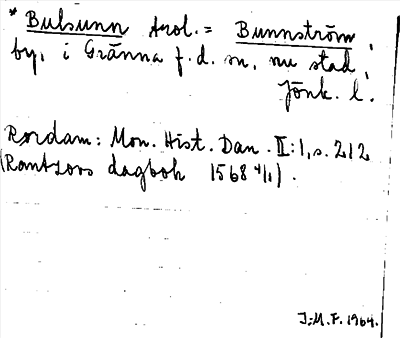 * Bulsunn trol. = Bunnström,
by, i Gränna f.d. sn, nu stad,
Jönk. l.
Rördam: Mon. Hist. Dan. II:1, s. 212
(Rantzovs dagbok 1568 4/1).
J:M.F. 1964.